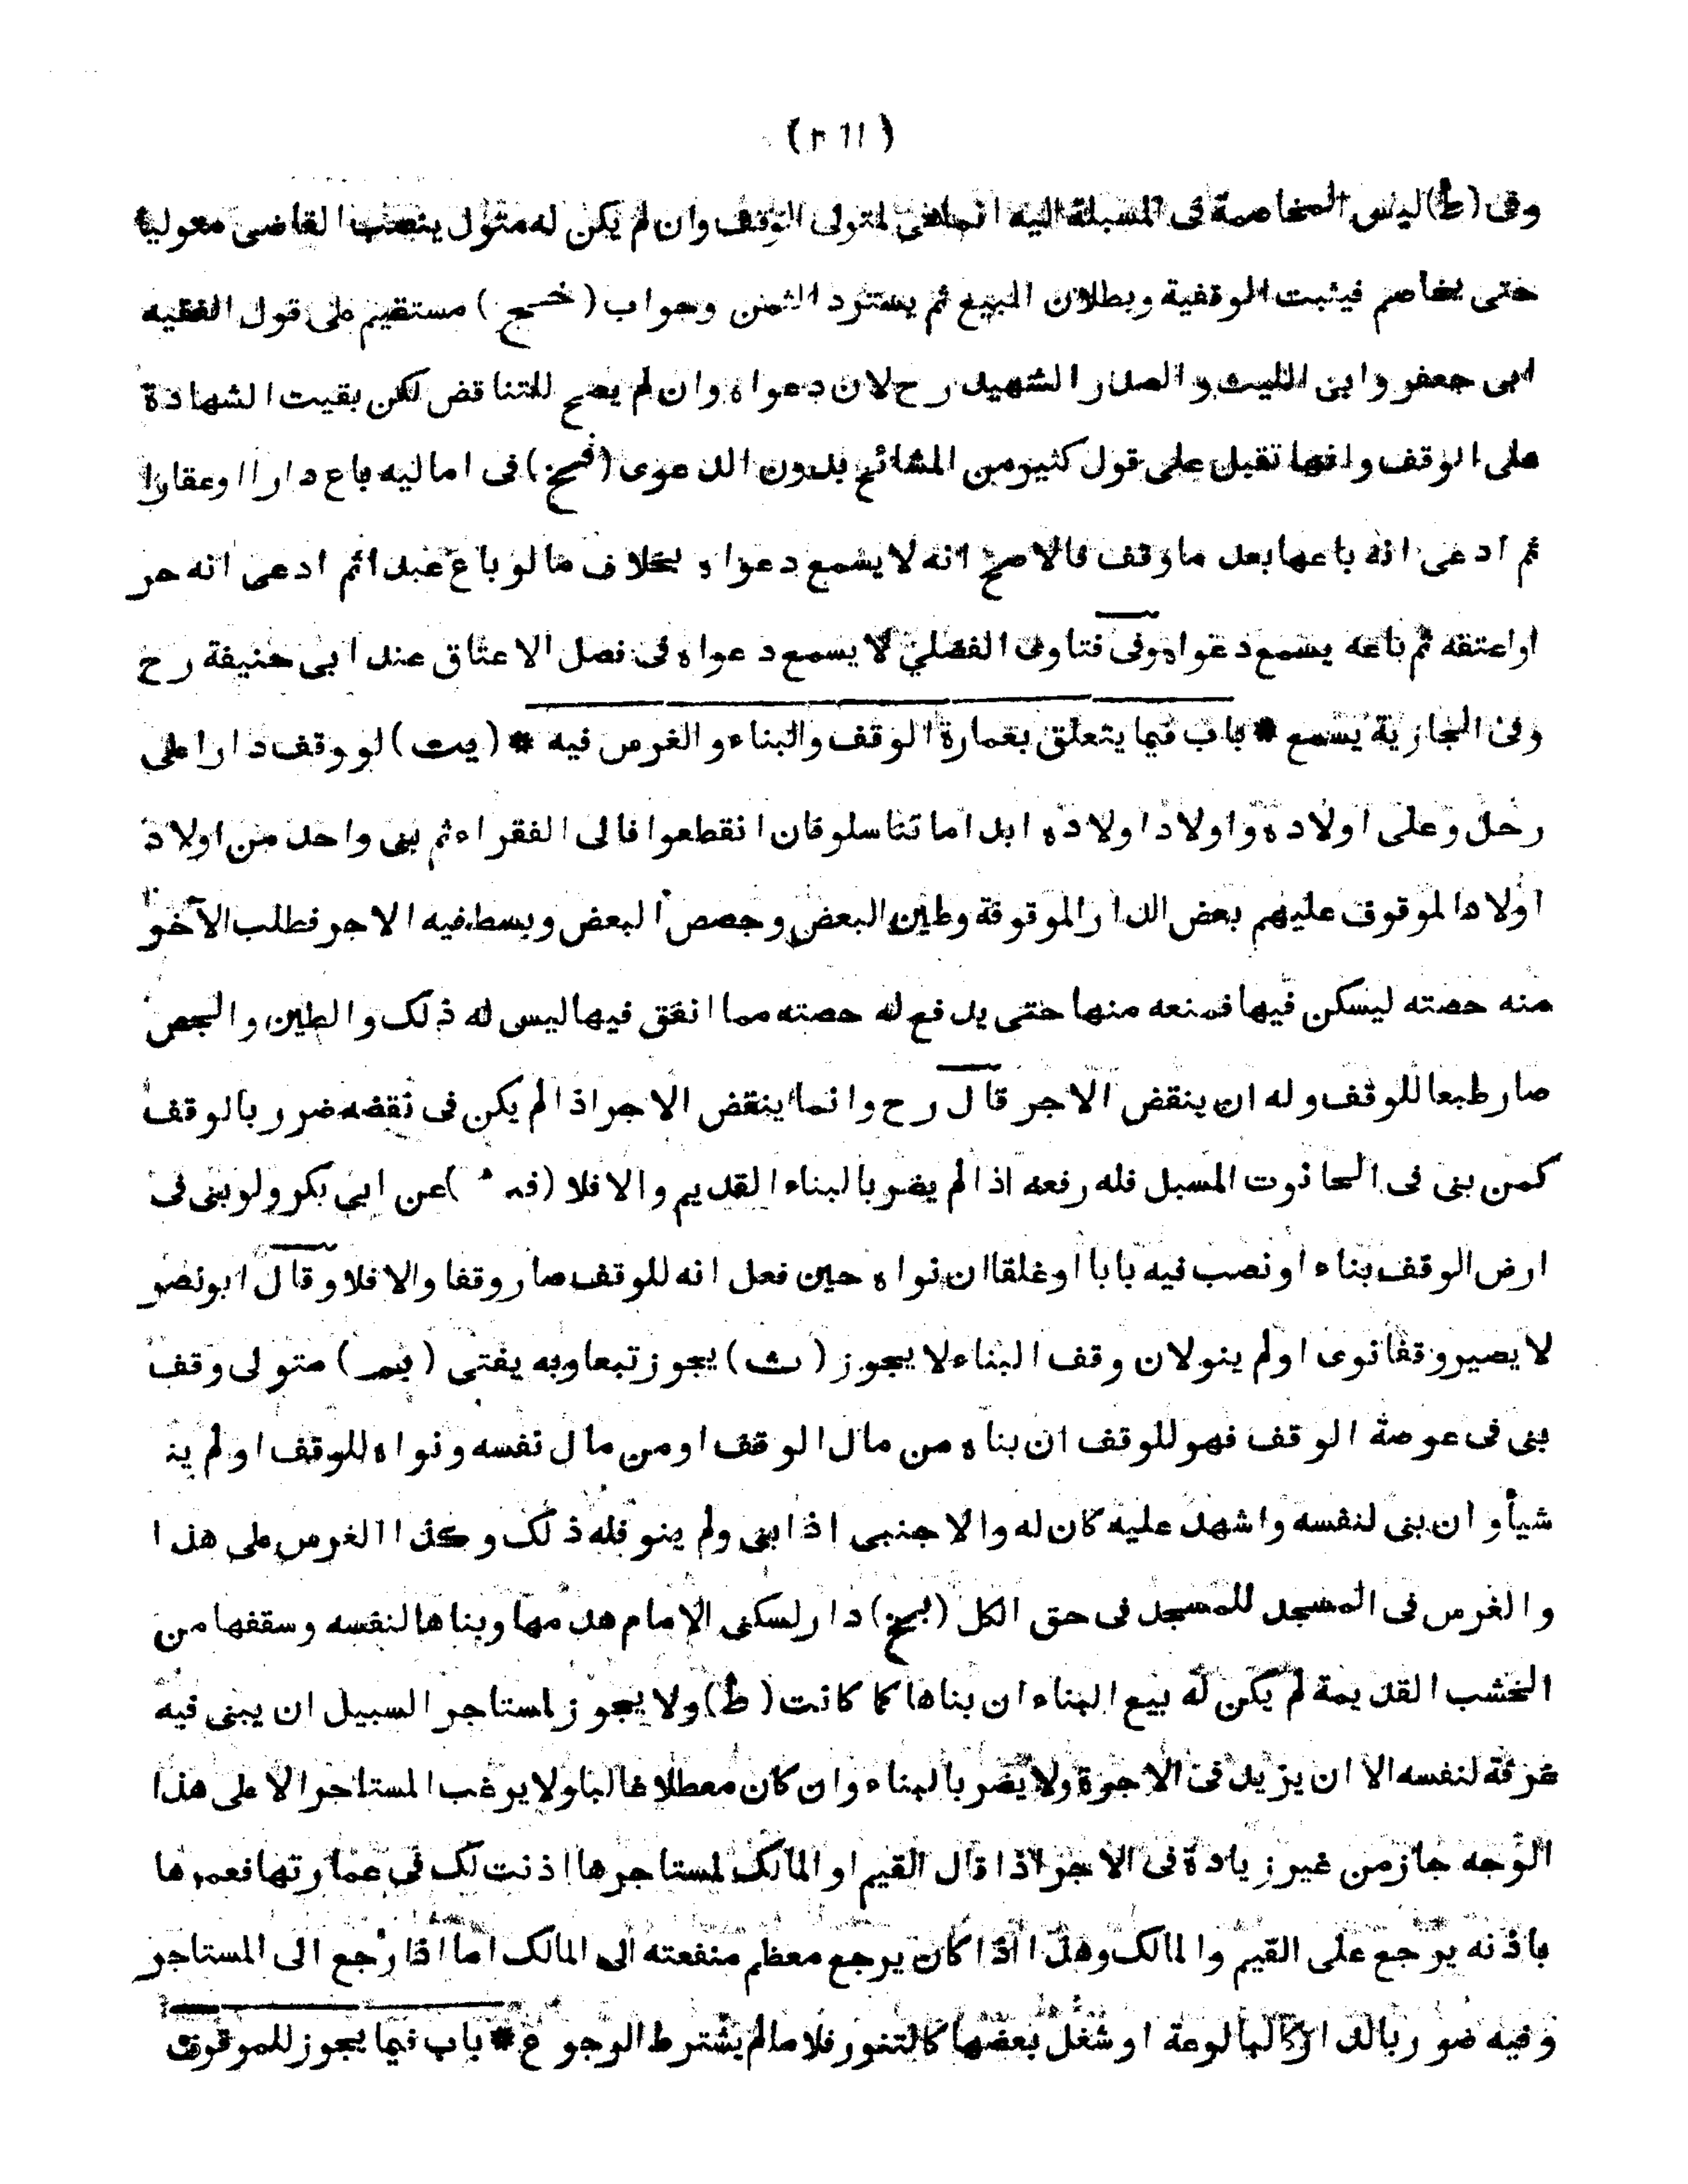 ( ٢١١ )
وفى (ط) ليس المخاصمة فى المسبلة اليه انما هى لمتولى الوقف وان لم يكن له متول ينصب القاضى متوليا
حتى يخاصم فيثبت الوقفية وبطلان البيع ثم يسترد الثمن وجواب (خـمـج) مستقيم على قول الفقيه
ابى جعفر وابى الليث والصدر الشهيد رح لان دعواه وان لم يصح للتناقض لكن بقيت الشهادة
على الوقف وانها تقبل على قول كثير من المشائخ بدون الدعوى (فسخ) فى اماليه باع دارا او عقارا
ثم ادعى انه باعها بعد ما وقف فالاصح انه لا يسمع دعواه بخلاف ما لو باع عبدا ثم ادعى انه حر
او اعتقه ثم باعه يسمع دعواه وفى فتاوى الفضلي لا يسمع دعواه فى فصل الاعتاق عند ابى حنيفة رح
وفى البجازية يسمع * باب فيما يتعلق بعمارة الوقف والبناء و الغرس فيه * (يت) لو وقف دارا على
رجل وعلى اولاده واولاد اولاده ابدا ما تناسلو فان انقطعوا فالى الفقراء ثم بنى واحد من اولاد
اولاد الموقوف عليهم بعض الدار الموقوفة وطين البعض وجصص البعض وبسط فيه الاجر فطلب الآخر
منه حصته ليسكن فيها فمنعه منها حتى يدفع له حصته مما انفق فيها ليس له ذلك والطين والجص
صار طبعا للوقف وله ان ينقض الاجر قال رح وانما ينقض الاجر اذا لم يكن فى نقضه ضرر بالوقف
كمن بنى فى الحانوت المسبل فله رفعه اذا لم يضر بالبناء القديم والا فلا (فه) عن ابى بكر ولو بنى فى
ارض الوقف بناء او نصب فيه بابا او غلقا ان نواه حين فعل انه للوقف صار وقفا والا فلا وقال ابو نصر
لا يصير وقفا نوى او لم ينو لان وقف البناء لا يجوز (ث) يجوز تبعا وبه يفتى (بمر) متولى وقف
بنى فى عرصة الوقف فهو للوقف ان بناه من مال الوقف او من مال نفسه ونواه للوقف او لم ينو
شيأ وان بنى لنفسه واشهد عليه كان له والاجنبى اذا بنى ولم ينو فله ذلك وكذا الغرس على هذا
والغرس فى المسجد للمسجد فى حق الكل (بخ) دار لسكنى الامام هدمها وبناها لنفسه وسقفها من
الخشب القديمة لم يكن له بيع البناء ان بناها كما كانت (ط) ولا يجوز لمستاجر السبيل ان يبنى فيه
غرفة لنفسه الا ان يزيد فى الاجرة ولا يضر بالبناء وان كان معطلا غالبا ولا يرغب المستاجر الا على هذا
الوجه جاز من غير زيادة فى الاجر اذا قال القيم او المالك لمستاجرها اذنت لك فى عمارتها فعمرها
باذنه يرجع على القيم والمالك وهذا اذا كان يرجع معظم منفعته الى المالك اما اذا رجع الى المستاجر
وفيه ضرر بالدار كالبالوعة او شغل بعضها كالتنور فلا مالم يشترط الرجوع * باب فيما يجوز للموقوف